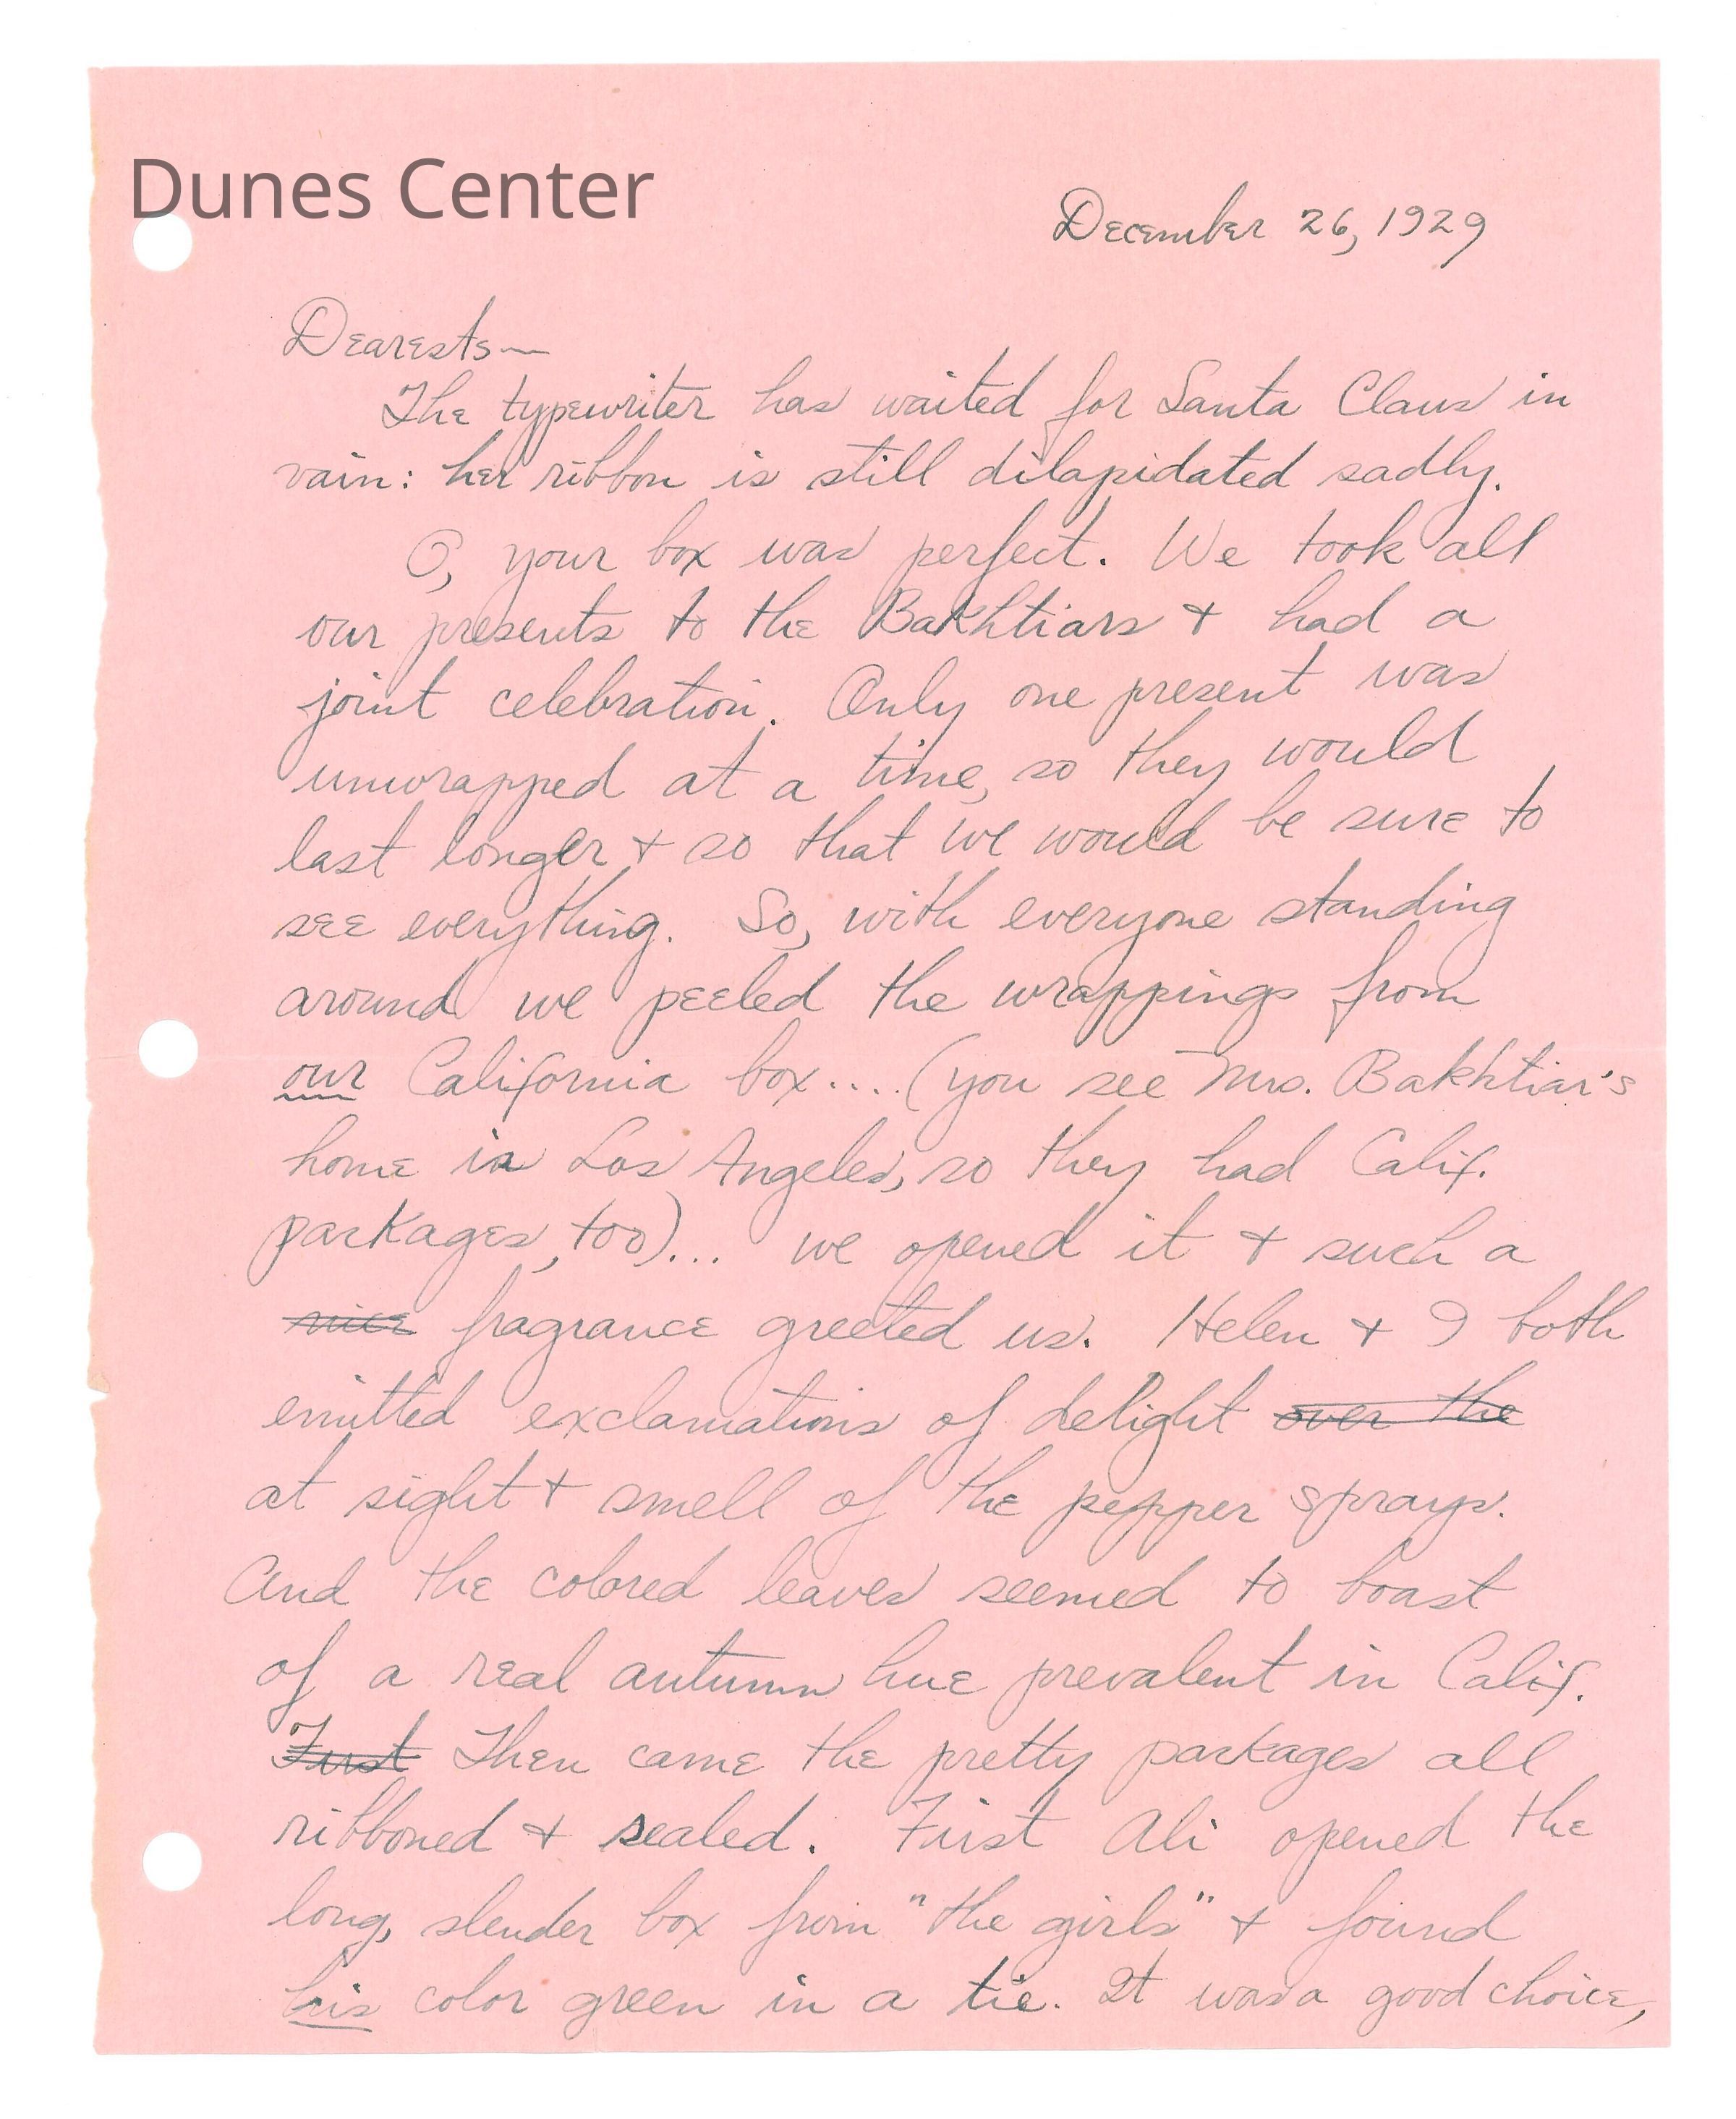 Dunes Center
December 26, 1929
Dearests—
The typewriter has waited for Santa Claus in
vain: her ribbon is still dilapidated sadly.
O, your box was perfect. We took all
our presents to the Bakhtiars + had a
joint celebration. Only one present was
unwrapped at a time, so they would
last longer + so that we would be sure to
see everything. So, with everyone standing
around we peeled the wrappings from
our California box.... (you see Mrs. Bakhtiar's
home is Los Angeles, so they had Calif.
packages, too)... we opened it + such a
nice fragrance greeted us. Helen + I both
emitted exclamations of delight over the
at sight + smell of the pepper sprays.
And the colored leaves seemed to boast
of a real autumn hue prevalent in Calif.
First Then came the pretty packages all
ribboned + sealed. First Ali opened the
long, slender box from "the girls" + found
his color green in a tie. It was a good choice,